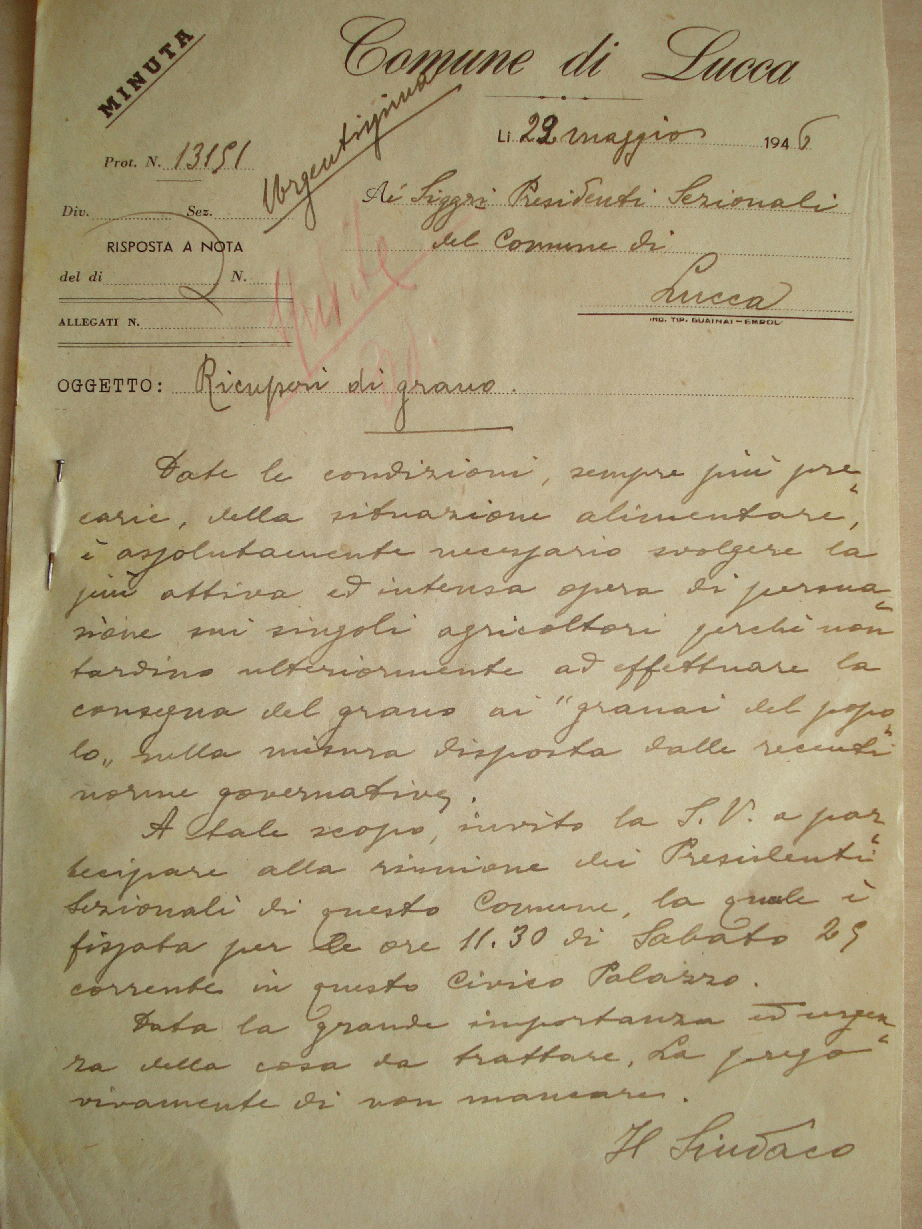 MINUTA
Comune di Lucca
Urgentissima
Li 22 maggio 1946
Prot. N. 13151
Ai Siggri Presidenti Sezionali
Div. Sez.
del Comune di
RISPOSTA A NOTA
del di N.
Lucca
ALLEGATI N.
ING. TIP. GUAINAI - EMPOLI
OGGETTO: Ricuperi di grano.
Date le condizioni, sempre più pre
carie, della situazione alimentare,
è assolutamente necessario svolgere la
più attiva ed intensa opera di persua
sione sui singoli agricoltori perchè non
tardino ulteriormente ad effettuare la
consegna del grano ai "granai del popo
lo„ nella misura disposta dalle recenti
norme governative.
A tale scopo, invito la S. V. a par
tecipare alla riunione dei Presidenti
Sezionali di questo Comune, la quale è
fissata per le ore 11.30 di Sabato 25
corrente in questo Civico Palazzo.
Data la grande importanza ed urgen
za della cosa da trattare, La prego
vivamente di non mancare.
Il Sindaco